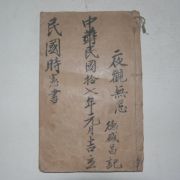 一夜觀無忌
德成昌記
中華民國拾七年元月吉立
民國時憲書